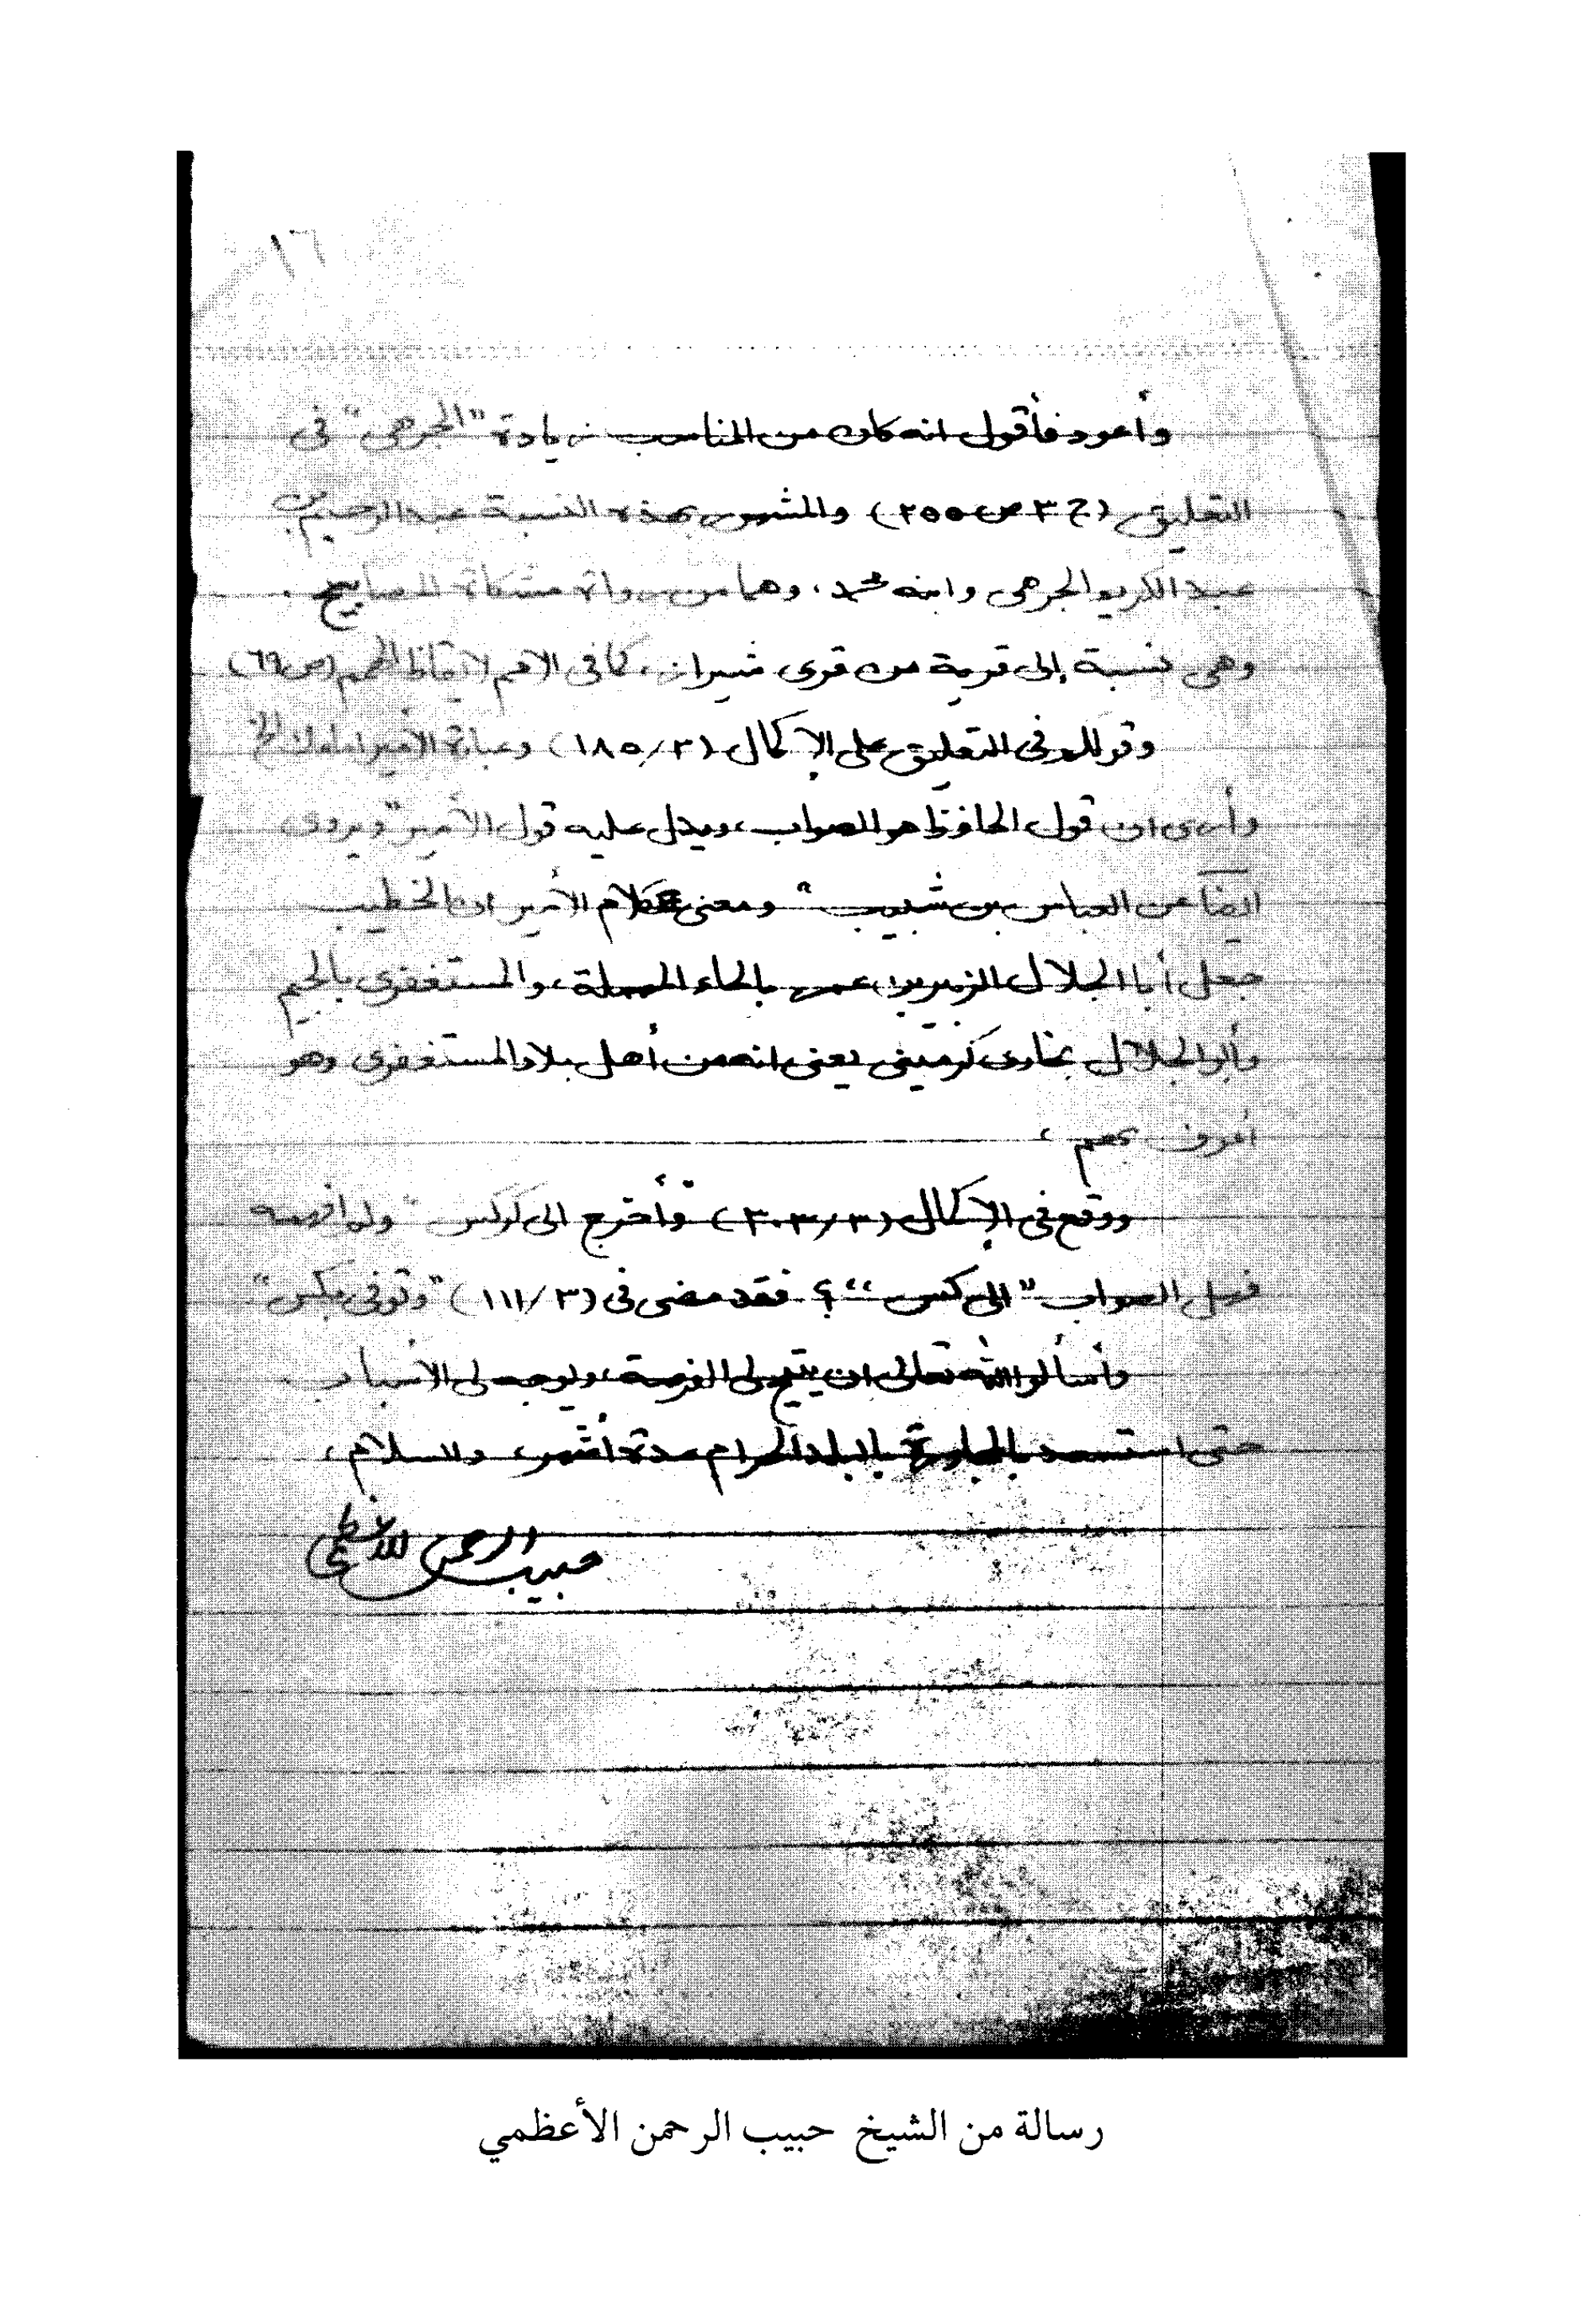 ١٦
وأعود فأقول انه كان من المناسب زيادة "الجرهى" فى
التعليق (ج ٣ ص ٢٥٥) والمشهور بهذه النسبة عبد الرحيم بن
عبد الكريم الجرهى وابنه محمد، وهما من رواة مشكاة المصابيح.
وهى نسبة إلى قرية من قرى شيراز، كما فى الامم لايقاظ الهمم (ص ٦٩)
وقولكم فى التعليق على الإكمال (٣/ ١٨٥) وعبارة الأمير الخ
وأرى ان قول الحافظ هو الصواب، ويدل عليه قول الأمير "ويروى
ايضا عن العباس بن شبيب" ومعنى كلام الأمير ان الخطيب
جعل أبا الجلال الزبير بن عمر بالحاء المهملة، والمستغفرى بالجيم
وأبو الجلال بخارى كرمينى يعنى انه من أهل بلاد المستغفرى وهو
أعرف بهم،
ووقع فى الإكمال (٣/ ٣٠٣) "وأخرج الى كركس" ولم افهمه
فهل الصواب "الى كس"؟ فقد مضى فى (٣/ ١١١) "وتوفى بكس"
وأسأل الله تعالى ان يتيح لى الفرصة، ويوجد لى الأسباب
حتى استسعد بالمجاورة بالبلد الحرام مدة أشهر، والسلام،
حبيب الرحمن الأعظمى
رسالة من الشيخ حبيب الرحمن الأعظمي